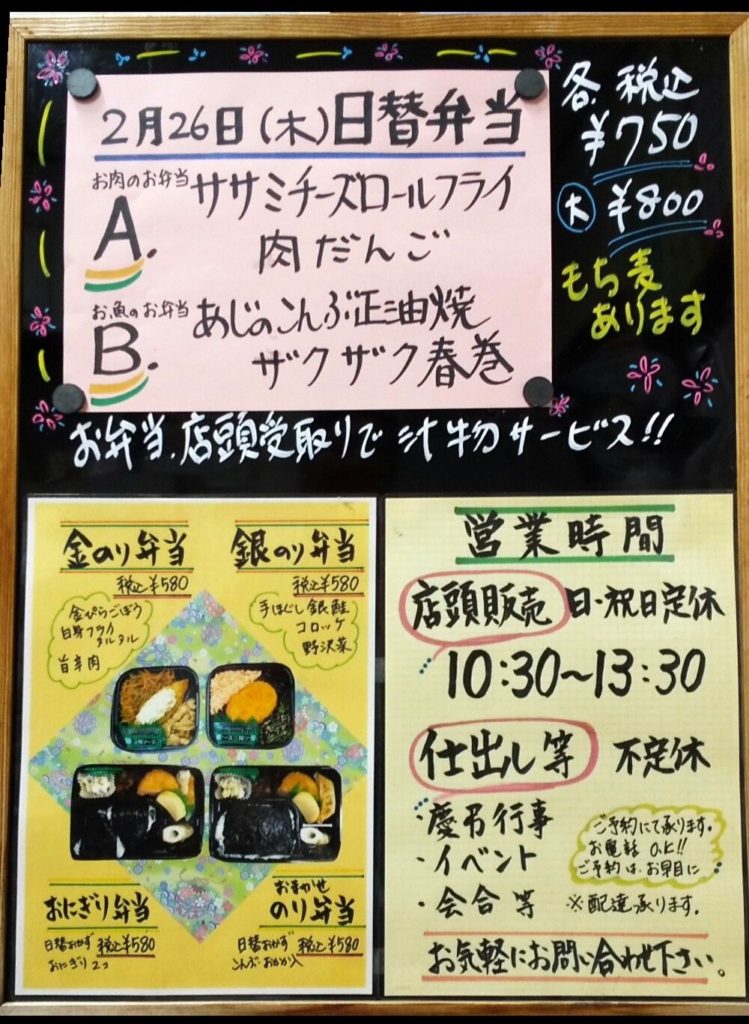 2月26日(木)日替弁当
お肉のお弁当
A.
ササミチーズロールフライ
肉だんご
お魚のお弁当
B.
あじのこんぶ正油焼
ザクザク春巻
各税込
¥750
大 ¥800
もち麦
あります
お弁当、店頭受取りで汁物サービス!!
金のり弁当
税込¥580
金ぴらごぼう
白身フライ
タルタル
旨辛肉
銀のり弁当
税込¥580
手ほぐし銀鮭
コロッケ
野沢菜
おにぎり弁当
日替おかず 税込¥580
おにぎり2コ
おまかせ
のり弁当
日替おかず 税込¥580
こんぶ・おかか入
営業時間
店頭販売 日・祝日定休
10:30~13:30
仕出し等 不定休
・慶弔行事
・イベント
・会合等
ご予約にて承ります。
お電話O.K!!
ご予約は、お早目に
※配達承ります。
お気軽にお問い合わせ下さい。